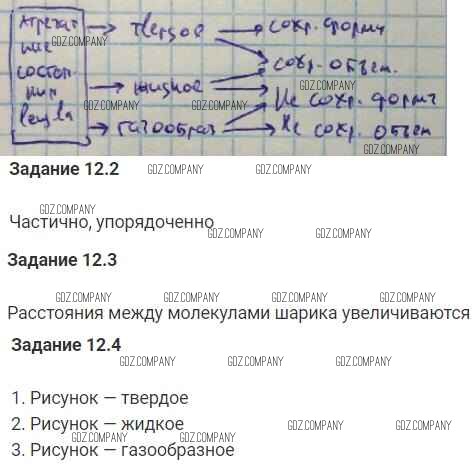 Агрегат → твердое → сохр. форму
ние GDZ.COMPANY
состоя- → сохр. объем.
ния → жидкое → Не сохр. форму
GDZ.COMPANY GDZ.COMPANY GDZ.COMPANY
вещ-ва → газообраз → Не сохр. объем
GDZ.COMPANY
Задание 12.2 GDZ.COMPANY GDZ.COMPANY
GDZ.COMPANY
Частично, упорядоченно
GDZ.COMPANY GDZ.COMPANY
Задание 12.3
GDZ.COMPANY GDZ.COMPANY GDZ.COMPANY
Расстояния между молекулами шарика увеличиваются
Задание 12.4
GDZ.COMPANY GDZ.COMPANY GDZ.COMPANY
1. Рисунок — твердое
2. Рисунок — жидкое GDZ.COMPANY GDZ.COMPANY
GDZ.COMPANY GDZ.COMPANY GDZ.COMPANY
3. Рисунок — газообразное